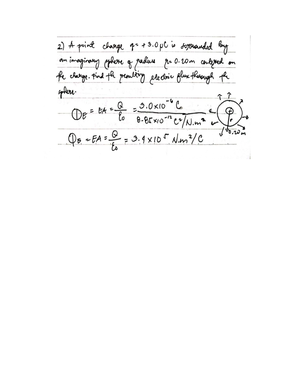 2) A point charge q = +3.0 μC is surrounded by
an imaginary sphere of radius r = 0.20 m centered on
the charge. Find the resulting electric flux through the
sphere.
Φ_E = EA = Q/ε₀ = 3.0×10⁻⁶ C / 8.85×10⁻¹² C²/N.m²
0.20m
Φ_E = EA = Q/ε₀ = 3.4×10⁵ N.m²/C